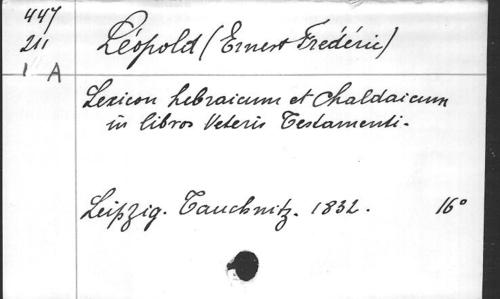 447
211
1 A
Léopold (Ernest Frédéric)
Lexicon hebraicum et Chaldaicum
in libros Veteris Testamenti.
Leipzig. Tauchnitz. 1832. 16°